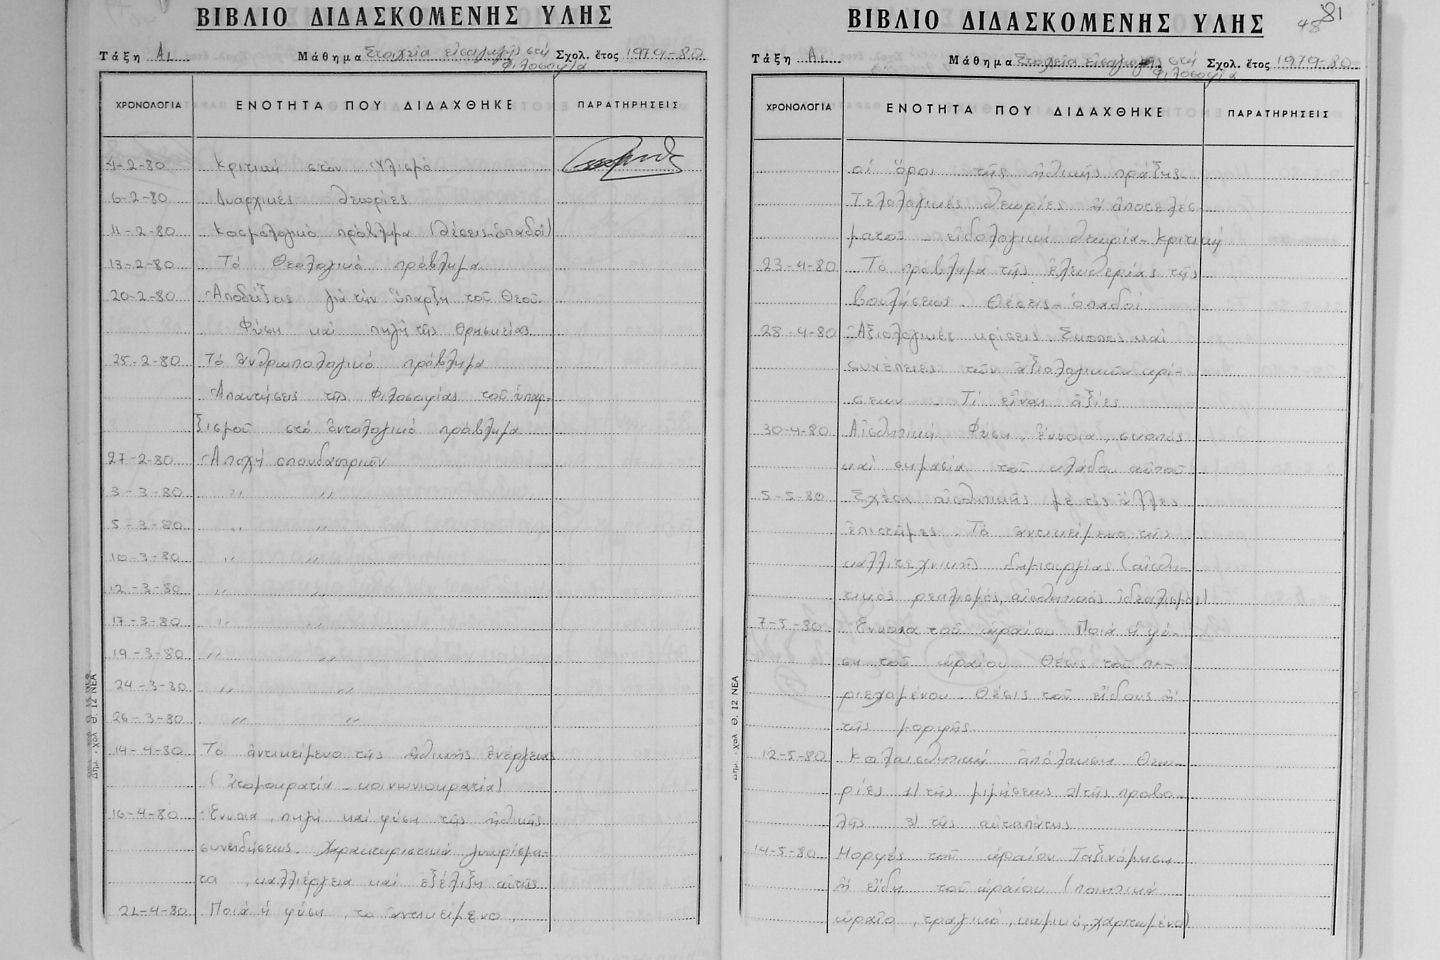 ΒΙΒΛΙΟ ΔΙΔΑΣΚΟΜΕΝΗΣ ΥΛΗΣ
Τάξη Α1 Μάθημα Στοιχεῖα εἰσαγωγῆς στή Φιλοσοφία Σχολ. ἔτος 1979-80
ΧΡΟΝΟΛΟΓΙΑ ΕΝΟΤΗΤΑ ΠΟΥ ΔΙΔΑΧΘΗΚΕ ΠΑΡΑΤΗΡΗΣΕΙΣ
4-2-80 Κριτική στόν Ὑλισμό
6-2-80 Δυαρχικές θεωρίες
11-2-80 Κοσμολογικό πρόβλημα (θέσεις-ὀπαδοί)
13-2-80 Τό Θεολογικό πρόβλημα
20-2-80 Ἀποδείξεις γιά τήν ὕπαρξη τοῦ Θεοῦ.
Φύση καί πηγή τῆς θρησκείας
25-2-80 Τό ἀνθρωπολογικό πρόβλημα
Ἀπαντήσεις τῆς Φιλοσοφίας τοῦ ὑπαρ-
ξισμοῦ στό ὀντολογικό πρόβλημα
27-2-80 Ἀποχή σπουδαστριῶν
3-3-80 〃 〃
5-3-80 〃 〃
10-3-80 〃 〃
12-3-80 〃 〃
17-3-80 〃 〃
19-3-80 〃 〃
24-3-80 〃 〃
26-3-80 〃 〃
14-4-80 Τό ἀντικείμενο τῆς ἠθικῆς ἐνέργειας
(ἀτομοκρατία - κοινωνιοκρατία)
16-4-80 Ἔννοια, πηγή καί φύση τῆς ἠθικῆς
συνειδήσεως. Χαρακτηριστικά γνωρίσμα-
τα, καλλιέργεια καί ἐξέλιξη αὐτῆς
21-4-80 Ποιά ἡ φύση, το ἀντικείμενο,
Δημ. - Χολ Θ, 12 ΝΕΑ
81
48
ΒΙΒΛΙΟ ΔΙΔΑΣΚΟΜΕΝΗΣ ΥΛΗΣ
Τάξη Α1 Μάθημα Στοιχεῖα εἰσαγωγῆς στή Φιλοσοφία Σχολ. ἔτος 1979-80
ΧΡΟΝΟΛΟΓΙΑ ΕΝΟΤΗΤΑ ΠΟΥ ΔΙΔΑΧΘΗΚΕ ΠΑΡΑΤΗΡΗΣΕΙΣ
οἱ ὅροι τῆς ἠθικῆς πράξης
Τελολογικές θεωρίες ἤ ἀποτελέσ-
ματος - εἰδολογική θεωρία - Κριτική
23-4-80 Τό πρόβλημα τῆς ἐλευθερίας τῆς
βουλήσεως. Θέσεις - ὀπαδοί
28-4-80 Ἀξιολογικές κρίσεις. Σκοπος καί
συνέπειες τῶν ἀξιολογικῶν κρί-
σεων Τί εἶναι ἀξίες
30-4-80 Αἰσθητική Φύση, ἔννοια, σκοπός
καί σημασία τοῦ κλάδου αὐτοῦ
5-5-80 Σχέση αἰσθητικῆς μέ τίς ἄλλες
ἐπιστῆμες. Τό ἀντικείμενο τῆς
καλλιτεχνικῆς δημιουργίας (αἰσθη-
τικός ρεαλισμός, αἰσθητικός ἰδεαλισμός)
7-5-80 Ἔννοια τοῦ ὡραίου Ποιά ἡ φύ-
ση τοῦ ὡραίου Θέσις τοῦ πε-
ριεχομένου. Θέσις τοῦ εἴδους ἤ
τῆς μορφῆς
12-5-80 Καλαισθητική ἀπόλαυση Θεω-
ρίες 1) τῆς μιμήσεως 2) τῆς προβο-
λῆς 3) τῆς αὐταπάτης
14-5-80 Μορφές τοῦ ὡραίου Ταξινόμηση
ἤ εἴδη τοῦ ὡραίου (ποιητικά
ὡραῖο, τραγικό, κωμικό, χαριτωμένο)
Δημ. - Χολ Θ, 12 ΝΕΑ